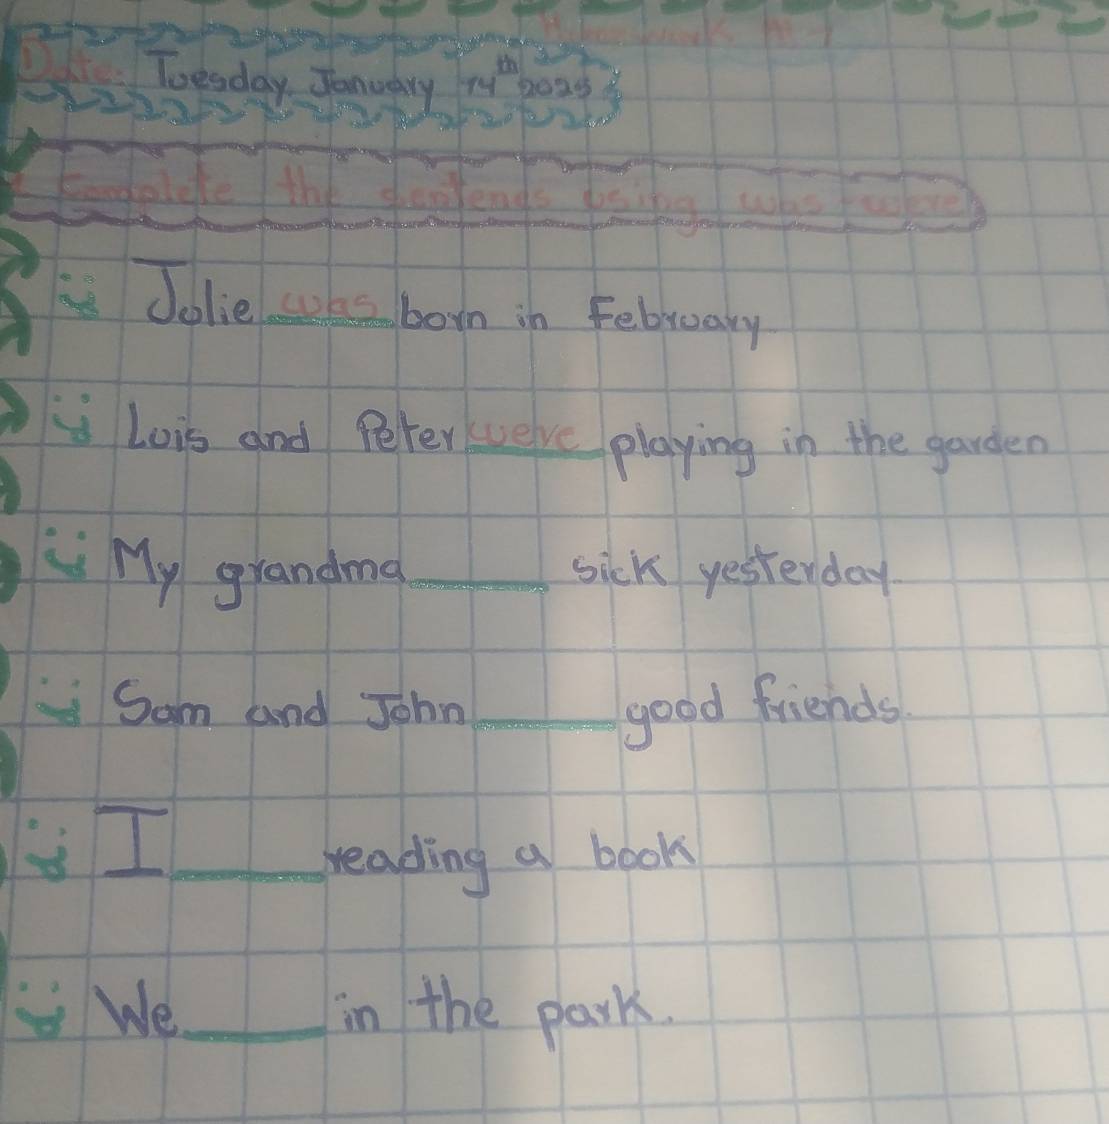 Homework N° 1
Date: Tuesday January 14th 2025
Complete the sentenes using was-were
Julie was born in February
Luis and Peter were playing in the garden
My grandma______ sick yesterday.
Sam and John______good friends.
I______reading a book
We______in the park.